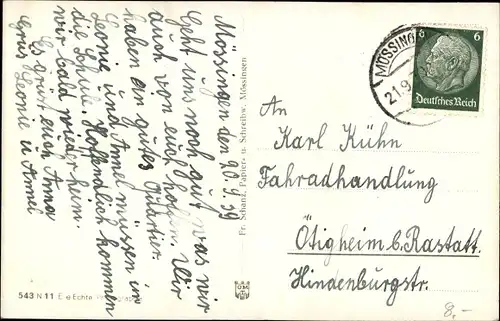 Mössingen den 20.9.39
Geht uns noch gut was wir
auch von euch hoffen. Wir
haben ein gutes Quartier.
Leonie und Annel müssen in
die Schule. Hoffendlich kommen
wir bald wieder heim.
Es grüst euch Anna
Grus Leonie u Annel
Fr. Schanz, Papier- u. Schreibw. Mössingen
MÖSSING
21.9.
6 6
Deutsches Reich
An
Karl Kühn
Fahradhandlung
Ötigheim b. Rastatt.
Hindenburgstr.
543 N 11 Echte
8.-